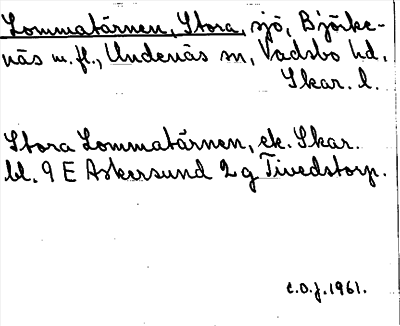 Lommatärnen, Stora, sjö, Björke-
näs m. fl., Undenäs sn, Vadsbo hd,
Skar. l.
Stora Lommatärnen, ek. Skar.
bl. 9 E Askersund 2 g Tivedstorp.
C.O.J. 1961.